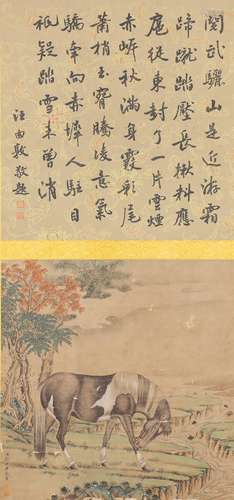 閱武驪山是近游霜
蹄蹴踏壓長楸料應
扈從東封了一片雲煙
赤岸秋滿身霞尾
蕭梢玉質騰凌意氣
驕牽向赤墀人駐目
祇疑踏雪未曾消
汪由敦敬題